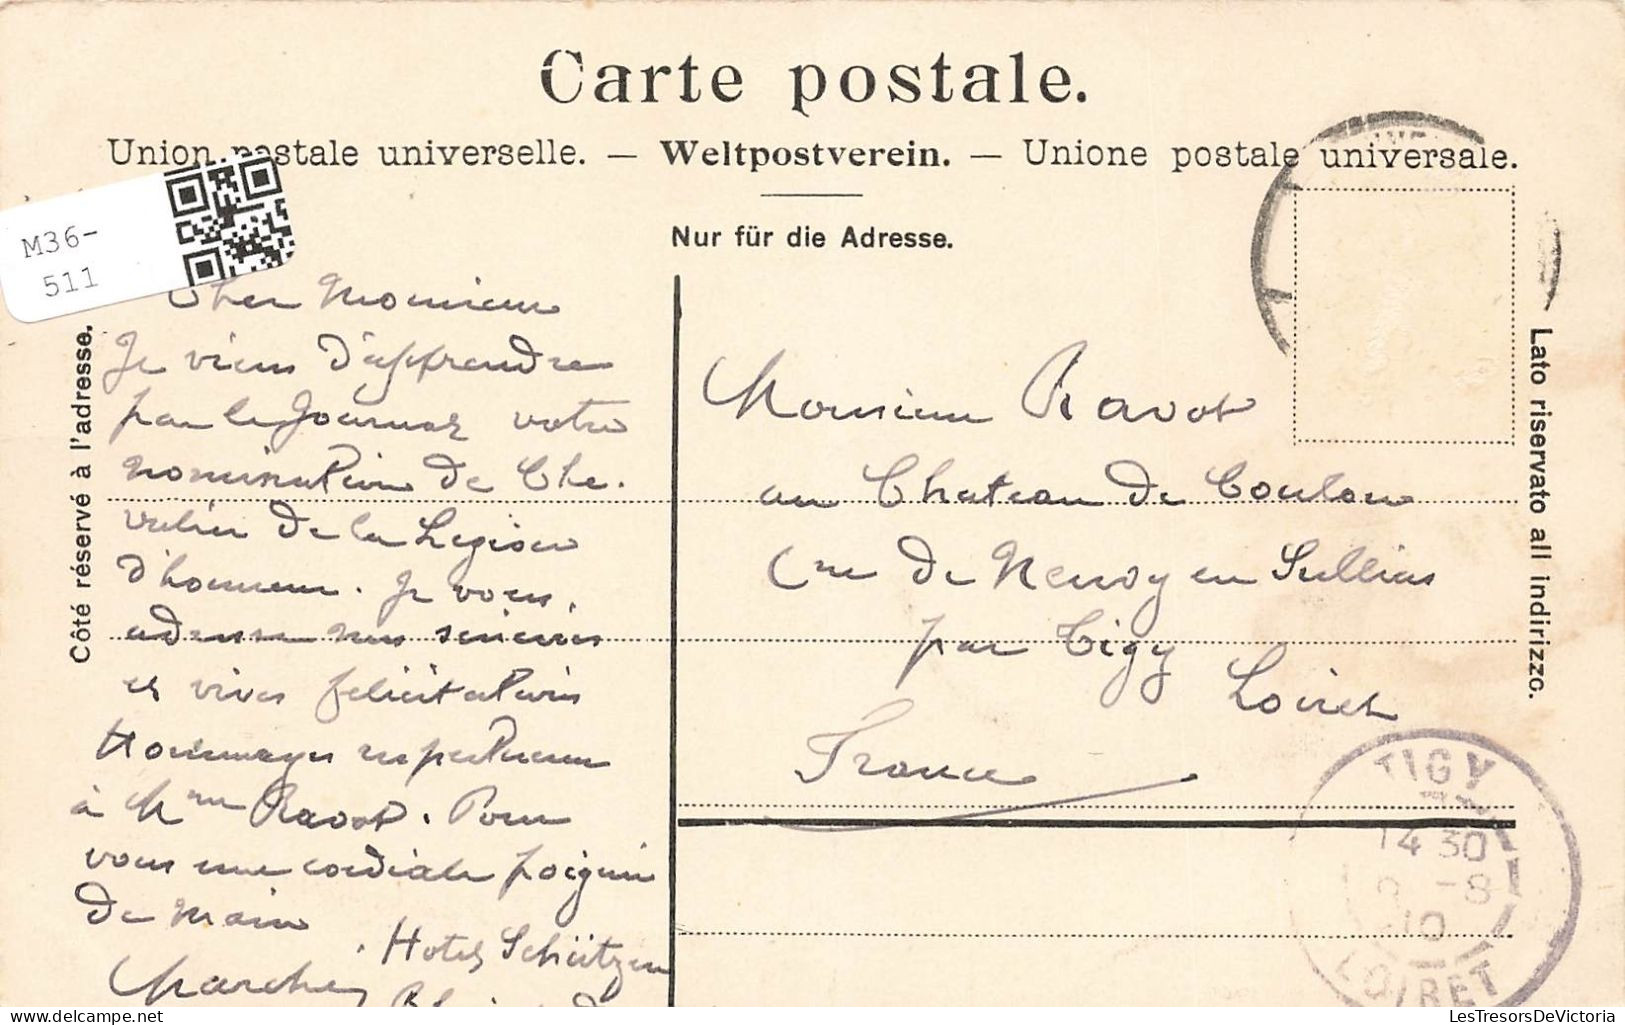 Carte postale.
Union postale universelle. — Weltpostverein. — Unione postale universale.
Nur für die Adresse.
M36-
511
Côté réservé à l'adresse.
Lato riservato all indirizzo.
Cher Monsieur
Je viens d'apprendre
par le Journal votre
nomination de Che-
valier de la Legion
d'honneur. Je vous
adresse mes sincères
et vives felicitations
Hommages respectueux
à Mme Ravot. Pour
vous une cordiale poignée
de main
Hotel Schützen
Monsieur Ravot
au Chateau de Coulon
Cne de Neuvoy en Sullias
par Tigy
Loiret
France
TIGY
14 30
8 -8
10
LOIRET
LesTresorsDeVictoria